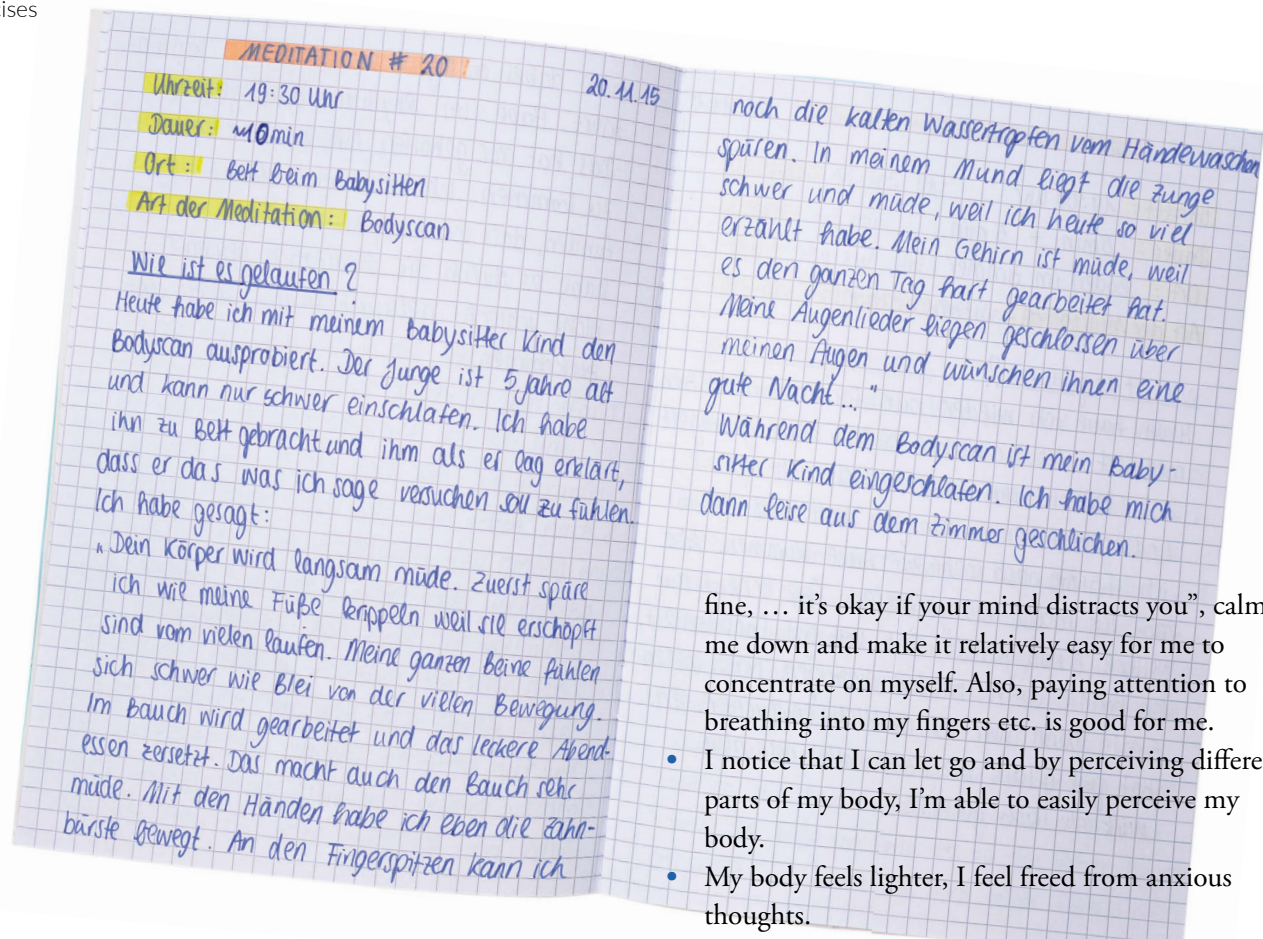 ises
MEDITATION # 20
20.11.15
Uhrzeit: 19:30 Uhr
Dauer: ~10min
Ort: Bett beim Babysitten
Art der Meditation: Bodyscan
Wie ist es gelaufen?
Heute habe ich mit meinem Babysitter Kind den
Bodyscan ausprobiert. Der Junge ist 5 Jahre alt
und kann nur schwer einschlafen. Ich habe
ihn zu Bett gebracht und ihm als er lag erklärt,
dass er das was ich sage versuchen soll zu fühlen.
Ich habe gesagt:
„Dein Körper wird langsam müde. Zuerst spüre
ich wie meine Füße kribbeln weil sie erschöpft
sind vom vielen laufen. Meine ganzen Beine fühlen
sich schwer wie Blei von der vielen Bewegung.
Im Bauch wird gearbeitet und das leckere Abend-
essen zersetzt. Das macht auch den Bauch sehr
müde. Mit den Händen habe ich eben die Zahn-
bürste bewegt. An den Fingerspitzen kann ich
noch die kalten Wassertropfen vom Händewaschen
spüren. In meinem Mund liegt die Zunge
schwer und müde, weil ich heute so viel
erzählt habe. Mein Gehirn ist müde, weil
es den ganzen Tag hart gearbeitet hat.
Meine Augenlieder liegen geschlossen über
meinen Augen und wünschen ihnen eine
gute Nacht..."
Während dem Bodyscan ist mein Baby-
sitter Kind eingeschlafen. Ich habe mich
dann leise aus dem Zimmer geschlichen.
fine, … it's okay if your mind distracts you”, calm
me down and make it relatively easy for me to
concentrate on myself. Also, paying attention to
breathing into my fingers etc. is good for me.
• I notice that I can let go and by perceiving differe
parts of my body, I'm able to easily perceive my
body.
• My body feels lighter, I feel freed from anxious
thoughts.